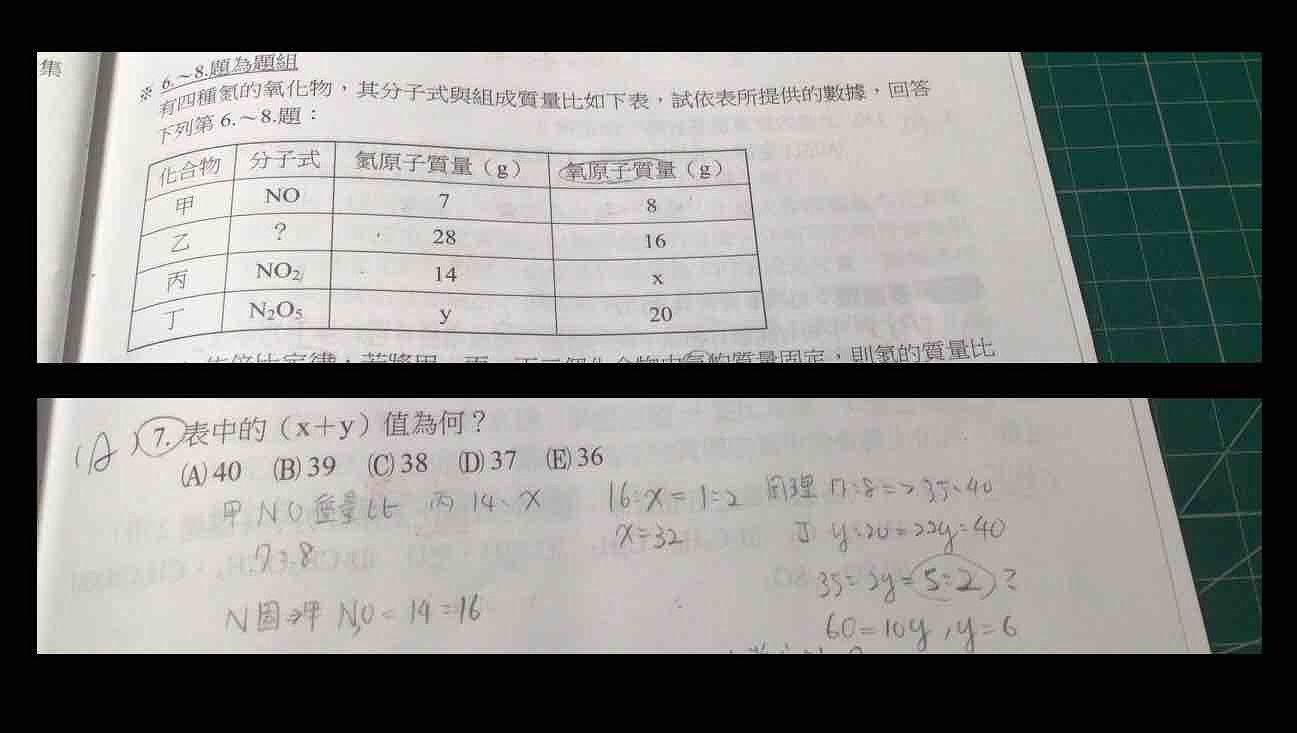 集
※ 6.~8.題為題組
有四種氮的氧化物，其分子式與組成質量比如下表，試依表所提供的數據，回答
下列第 6.~8.題：
化合物 分子式 氮原子質量（g） 氧原子質量（g）
甲 NO 7 8
乙 ? 28 16
丙 NO₂ 14 x
丁 N₂O₅ y 20
(A) 7. 表中的（x＋y）值為何？
(A) 40 (B) 39 (C) 38 (D) 37 (E) 36
甲 NO 質量比 丙 14:x 16:x=1:2 同理 7:8=>35:40
7:8 x=32 丁 y:20=>2y=40
N固→甲 N,O=14=16 35=2y=5:2 ?
60=10y, y=6